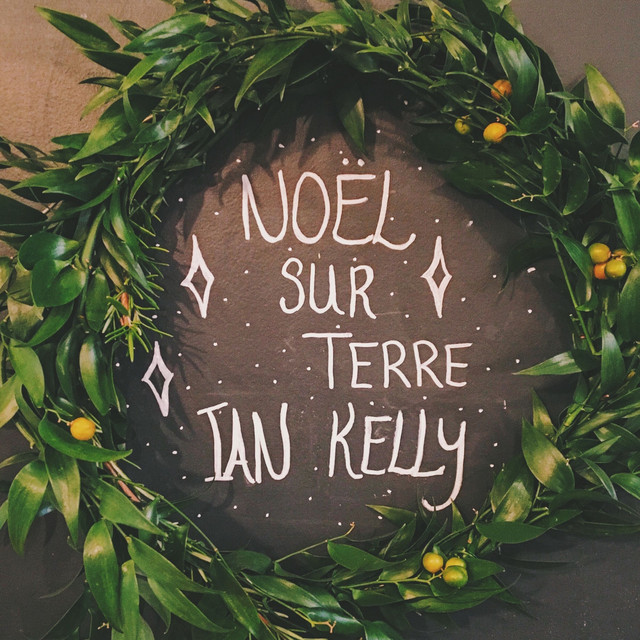 NOËL
SUR
TERRE
IAN KELLY